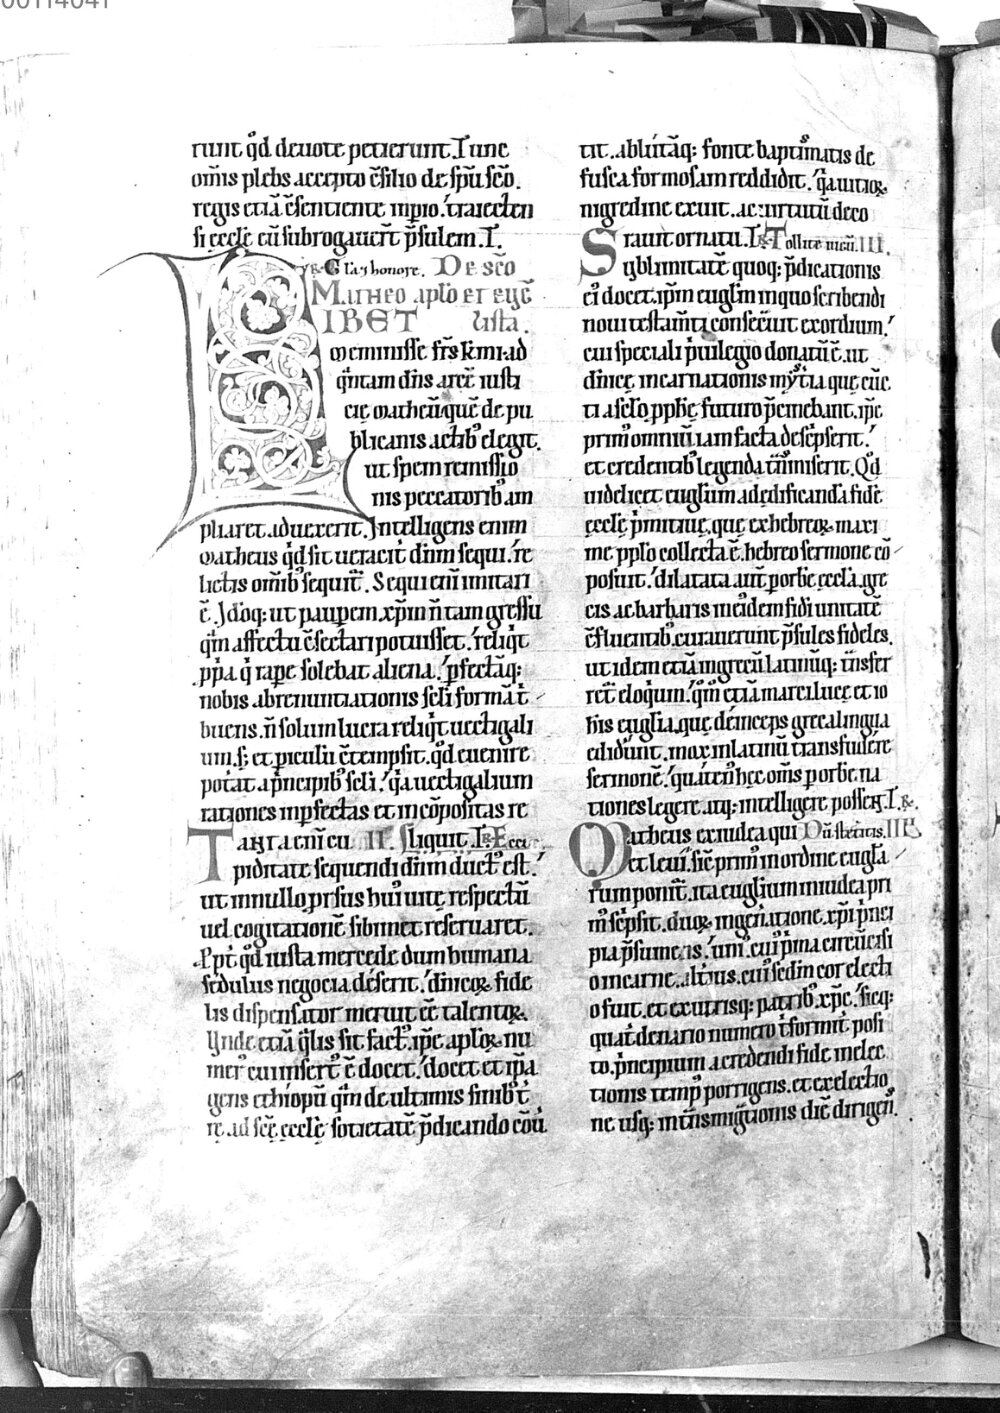 00114041
runt qd̕ deuote petierunt. Tunc
om̄is plebs accepto c̄silio de sp̄u sc̄o.
regis etiā c̄sentiente inp̱io. traiecten
si eccłe eū subrogauer̄t p̄sulem. T.
℣. Gła ⁊ honore. De sc̄o
Matheo aplo et euḡe
LIBET lista.
meminisse fr̄s k̄mi. ad
qͣntam dn̄s arcē iusti
cię matheū. quē de pu
blicanis actibꝰ elegit.
ut spem remissio
nis peccatoribꝰ am
pliaret. aduexerit. Intelligens enim
matheus qd̕ sit ueracit̕ dn̄m sequi. re
lictis om̄ibꝰ sequit̕. Sequi eni̅ imitari
ē. Idoq; ut paup̱em xp̄m n̄ tam gressu
qͣm affectu c̄sectari potuisset. reliqͥt
p̱p̱a qͥ rape solebat aliena. p̱fectāq;
nobis abrenuntiationis seculi formā t̕
buens. n̄ solum lucra reliqͥt uectigali
um. s; et p̱iculū c̄tempsit. qd̕ euenire
pot̕at a pͥncipibꝰ seculi. qͥa uectigalium
rationes inp̱fectas et incōpositas re
TANTA eni̅ cu II. liquit. T. ℣. Ecce
piditate sequendi dn̄m ductꝰ est.
ut in nullo p̱rsus huiꝰ uitę respectū
uel cogitationē sibimet reseruaret.
Ppt̕ qd̕ iusta mercede dum humana
sedulus negocia deserit. dn̄icoꝝ fide
lis dispensator meruit eē talentoꝝ.
Vnde etiā qͣlis sit factꝰ. ip̄e aploꝝ nu
merꝰ cui insertꝰ ē docet. docet et ip̄a
gens ethiopū qͣm de ultimis finibꝰ t̕
rę. ad sc̄ę eccłę societatē p̄dicando cōu̕
tit. ablutāq; fonte baptismatis de
fusca formosam reddidit. qͣ uitioꝝ
nigredine exuit. ac uirtutū deco
S rauit ornatu. T. ℣. Tollite meū. III.
ublimitatē quoq; p̄dicationis
eiꝰ docet. ip̄m euglm in quo scribendi
noui testam̄ti consecut̕ exordium.
cui speciali p̕uilegio donatū ē. ut
dn̄icę incarnationis myst̕ia quę cūc
ti a sclo p̱phę futuro p̱cinebant. ip̄e
primꝰ omniū iam facta descͥpserit.
et credentibꝰ legenda tͣnsmiserit. Qd̕
uidelicet euglium ad edificandā fidē
eccłę pͥmitiuę. quę ex hebreoꝝ maxi
me pplo collecta ē. hebreo sermone cō
posuit. dilatata aut̄ p̱ orbē eccła. gre
cis ac barbaris in eādem fidi unitatē
c̄fluentibꝰ. curauerunt p̄sules fideles.
ut idem etiā in grecū latinūq; tͣnsfer
ret̕ eloqͥum. qͣm etiā marci luce et io
h̄is euglia. quę deinceps greca lingua
edid̕unt. mox in latinū transfudere
sermonē. quatenꝰ hęc om̄s p̱ orbē na
tiones legere atq; intelligere possent. T. ℣.
Matheus ex iudea qui Dū steteritis. IIII.
et leui. sic primꝰ in ordine eugła
rum ponit̕. ita euglium in iudea pri
mꝰ scͥpsit. duoꝝ in gen̄atione xp̄i pͥnci
pia p̄sumens. uniꝰ. cuiꝰ pͥma circūcisi
o in carne. alt̕ius. cuiꝰ sedm cor electi
o fuit. et ex utrisq; patribꝰ xp̄c. sicq;
quat̕denario numero t̕formit̕ posi
to. pͥncipium a credendi fide in elec
tionis temp̱ porrigens. et ex electio
ne usq; in tͣnsmigͣtionis diē dirigens.